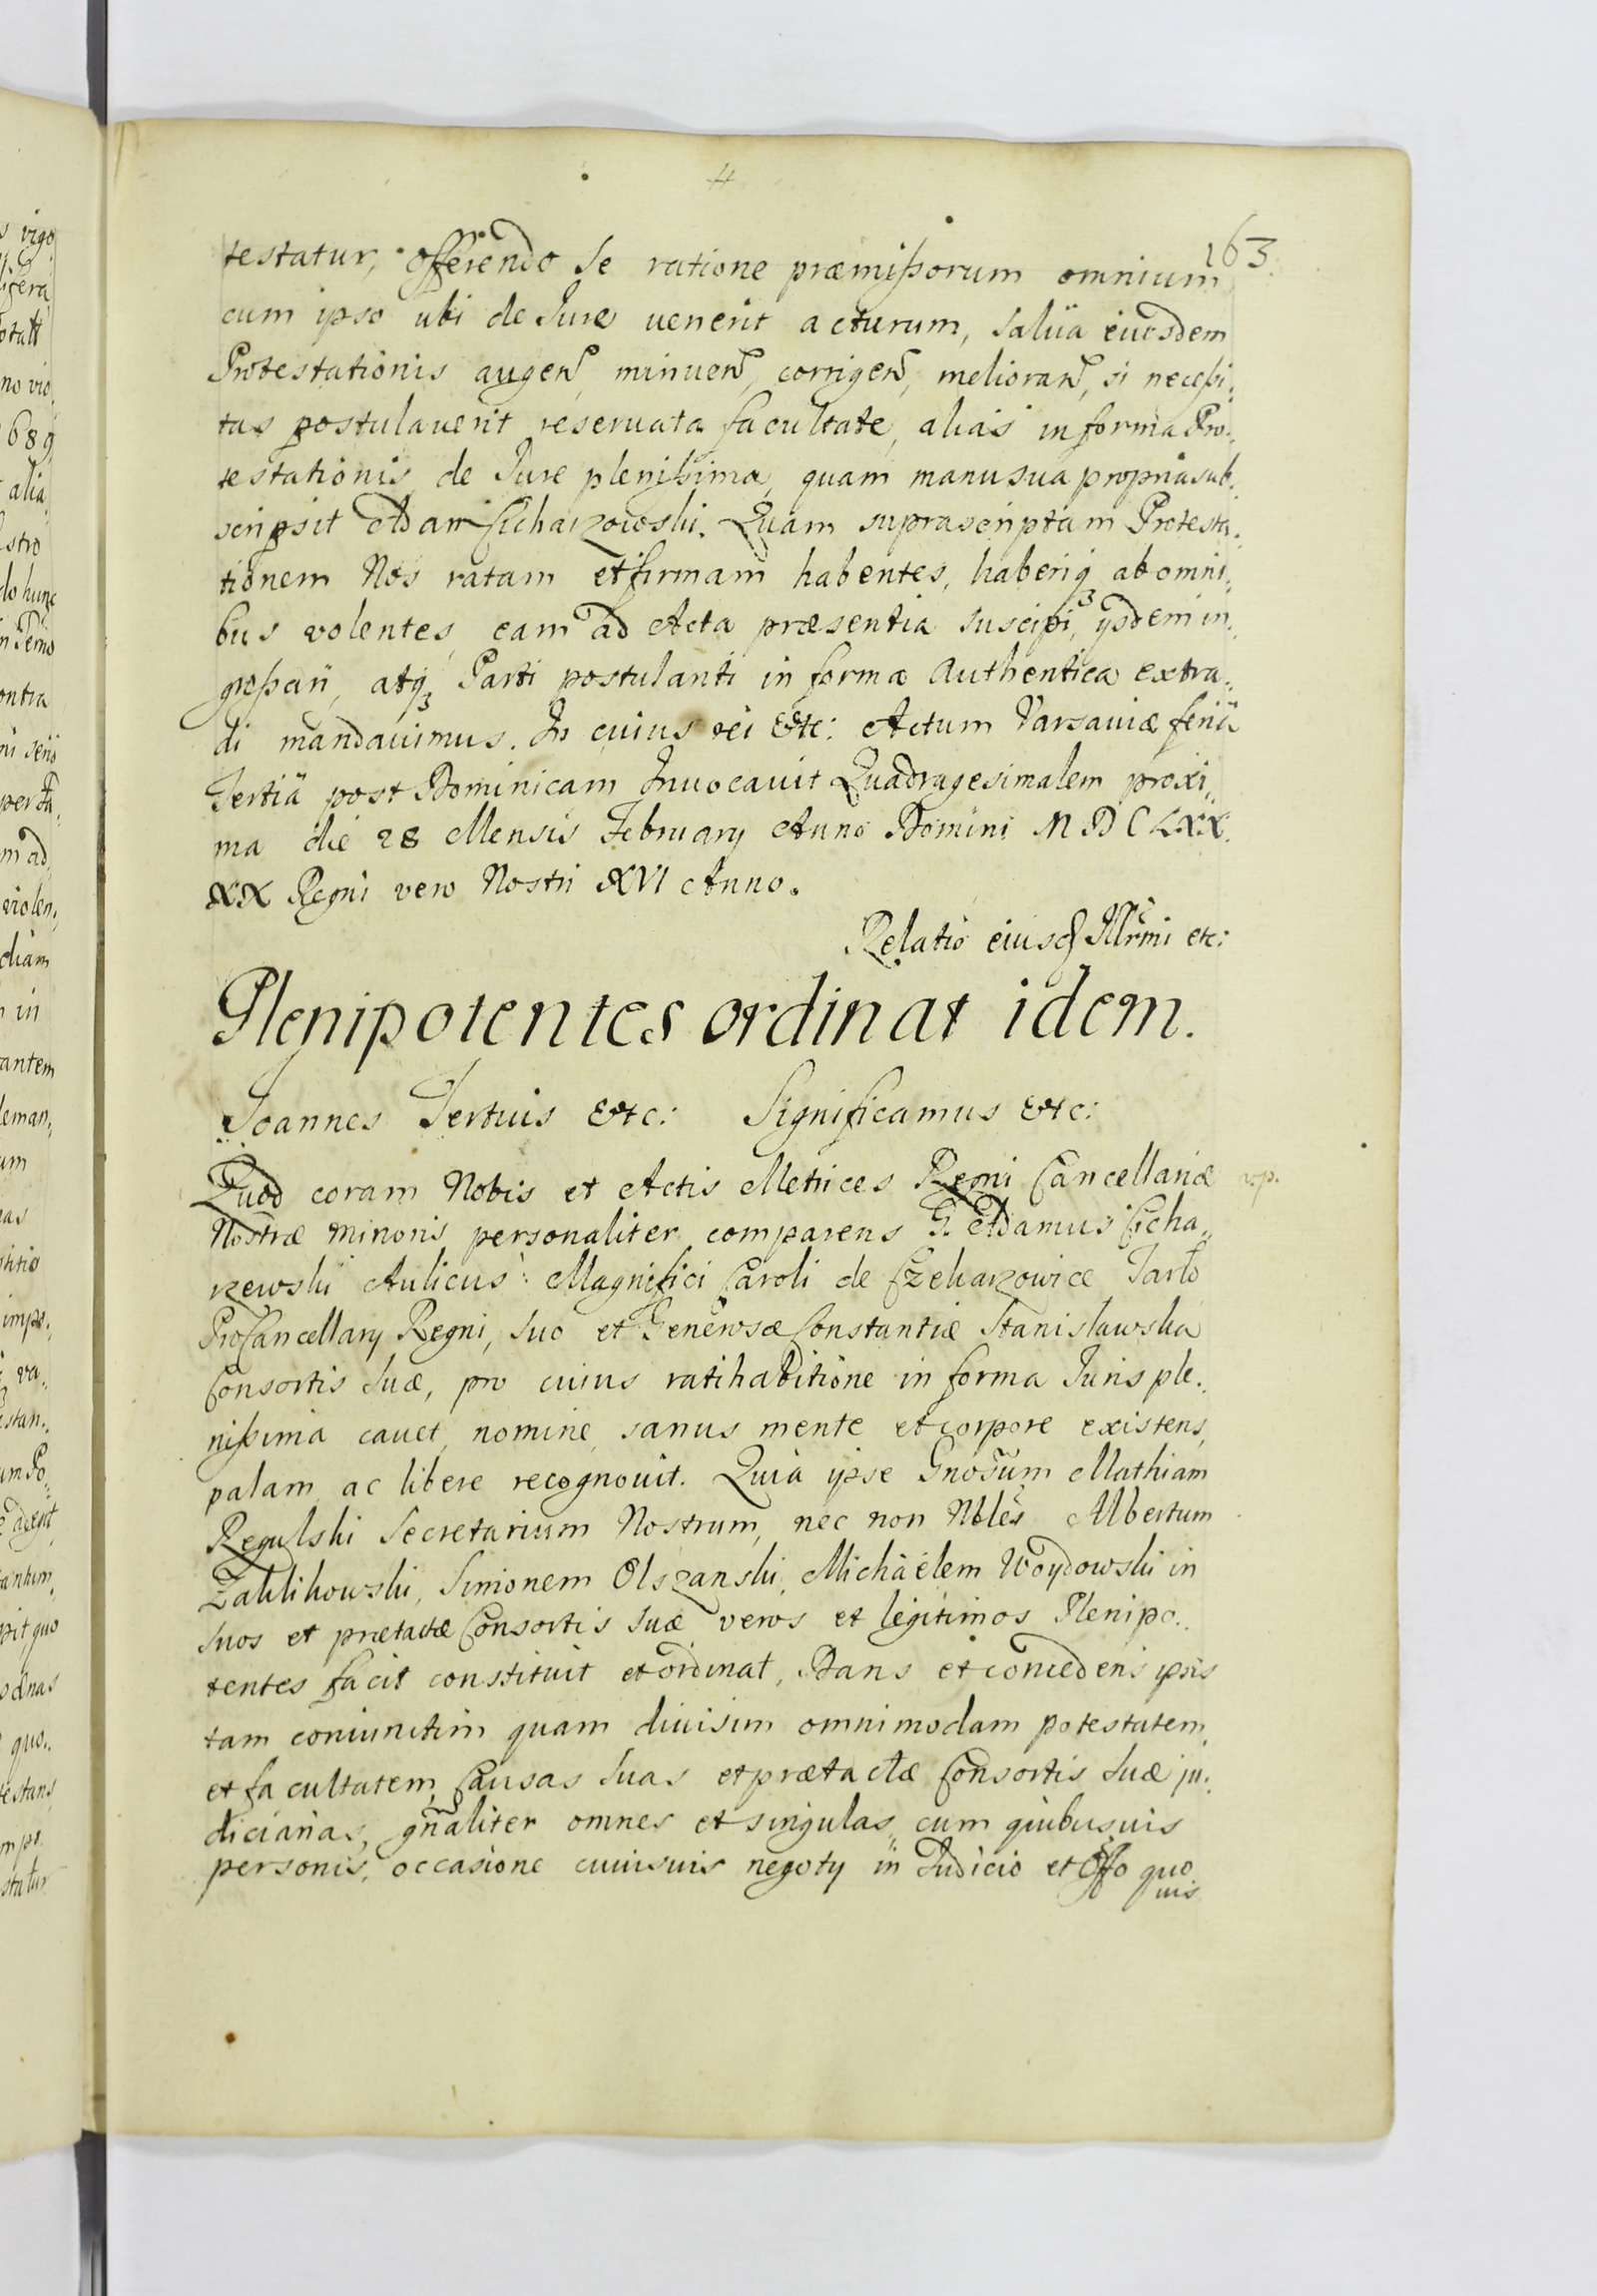 163.
testatur, offerendo Se ratione præmißorum omnium
cum ipso ubi de Jure uenerit acturum, salua eiusdem
Protestationis augen̄, minuen̄, corrigen̄, melioran̄, si neceßi„
tas postulauerit reseruata facultate, alias in forma Pro„
testationis de Jure plenißima, quam manu sua propria sub„
scripsit Adam Cicharzowski. Quam suprascriptam Protesta„
tionem Nos ratam et firmam habentes, haberiq3 ab omni„
bus volentes, eam ad Acta præsentia suscipi, ysdem in„
greßari, atq3 Parti postulanti in forma Authentica extra„
di mandauimus. In cuius rei Etc: Actum Varsauiæ feria
Tertia post Dominicam Inuocauit Quadragesimalem proxi„
ma die 28 Mensis February Anno Domini MDCLXX.
XX Regni vero Nostri XVI Anno.
Relatio eiusd Illr̃mi etc:
Plenipotentes ordinat idem.
Joannes Tertius Etc: Significamus Etc:
Quod coram Nobis et Actis Metrices Regni Cancellariæ
Nostræ Minoris personaliter comparens G. Adamus Cicha„
rzewski Aulicus Magnifici Caroli de Czekarzowice Tarło
ProCancellary Regni, suo et Generosæ Constantiæ Stanisławska
Consortis Suæ, pro cuius ratihabitione in forma Juris ple„
nißima cauet, nomine, sanus mente et corpore existens,
palam ac libere recognouit. Quia ipse Gnosum̃ Mathiam
Regulski Secretarium Nostrum, nec non Nbles Albertum
Zablikowski, Simonem Olszanski, Michaelem Woydowski in
suos et prætactæ Consortis Suæ veros et legitimos Plenipo„
tentes facit constituit et ordinat, Dans et concedens ipsis
tam coniunctim quam diuisim omnimodam potestatem,
et facultatem, Causas Suas et prætactæ Consortis Suæ ju„
diciarias, gñaliter omnes et singulas, cum quibusuis
personis, occasione cuiusuis negoty in Judicio et Offo quo
uis